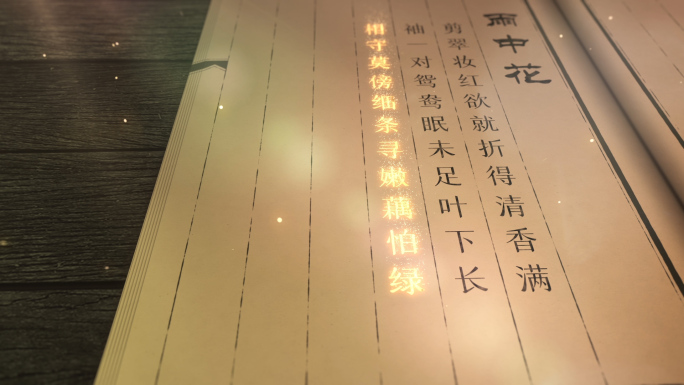 雨中花
剪翠妆红欲就折得清香满
袖一对鸳鸯眠未足叶下长
相守莫傍细条寻嫩藕怕绿